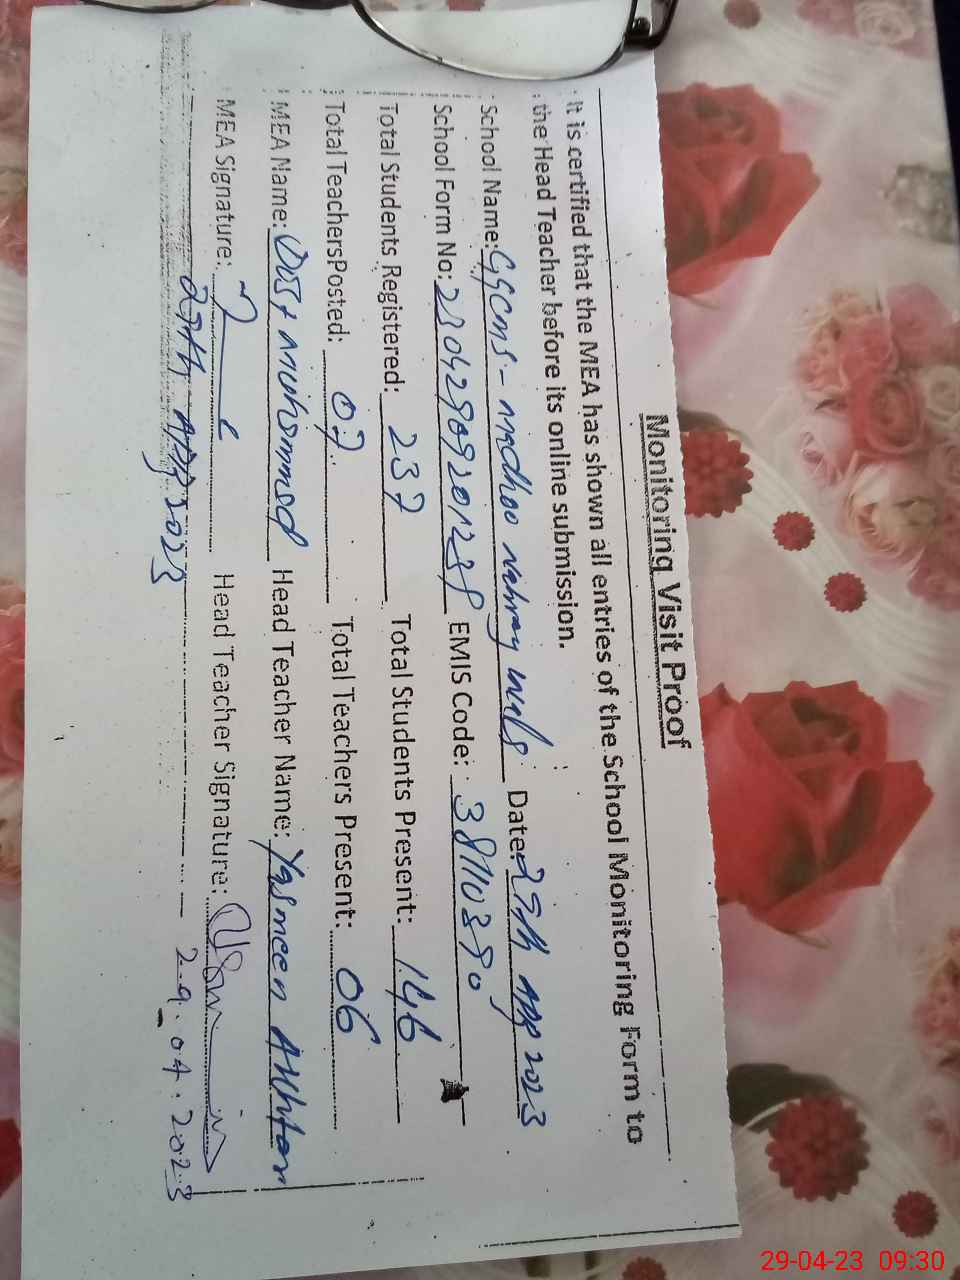 Monitoring Visit Proof
It is certified that the MEA has shown all entries of the School Monitoring Form to
the Head Teacher before its online submission.
School Name: GGCMS - Madhoo Date: 29th Apr 2023
School Form No: EMIS Code:
Total Students Registered: 237 Total Students Present: 146
Total TeachersPosted: 07 Total Teachers Present: 06
MEA Name: Dost Muhammad Head Teacher Name: Yasmeen Akhtar
MEA Signature: Head Teacher Signature:
29th Apr 2023 29.04.2023
29-04-23 09:30